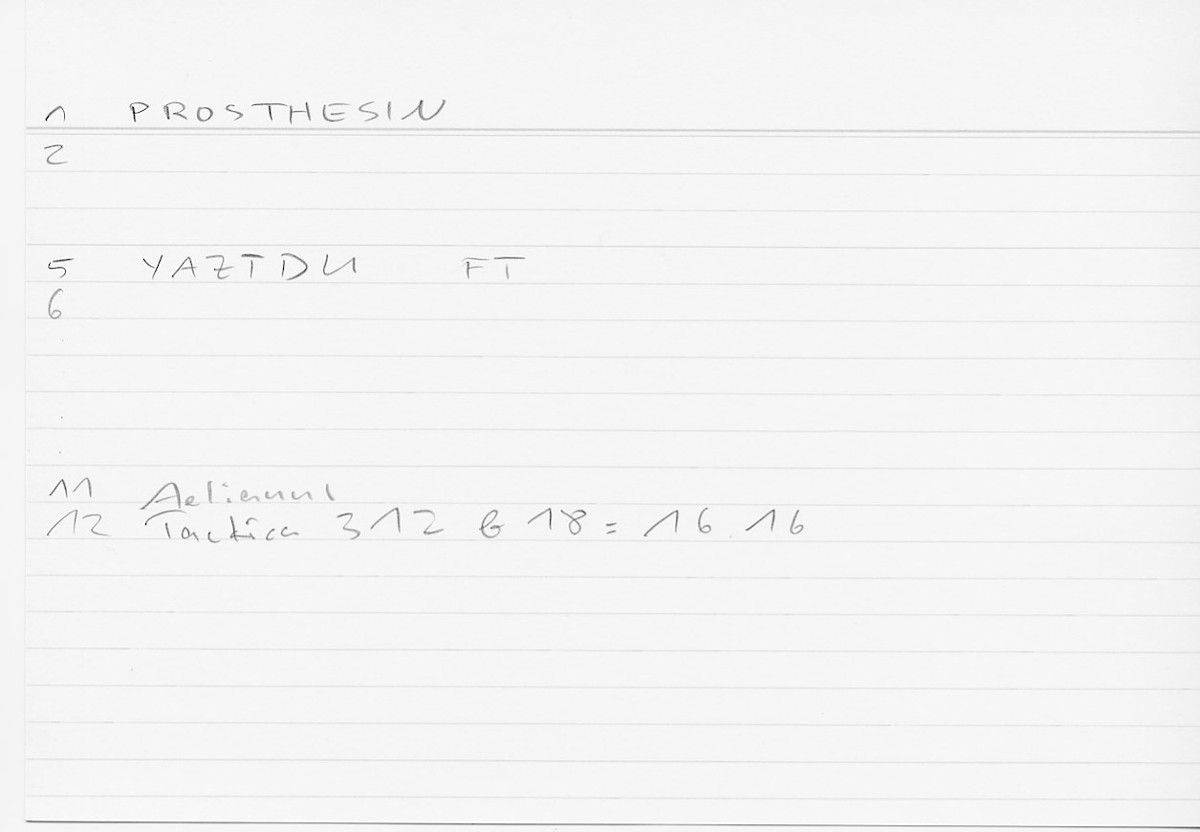 1 PROSTHESIN
2
5 YAZTDU FT
6
11 Aelianus
12 Tactica 312 b 18 = 16.16